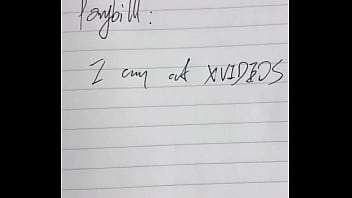 Ponybill:
I am at XVIDEOS